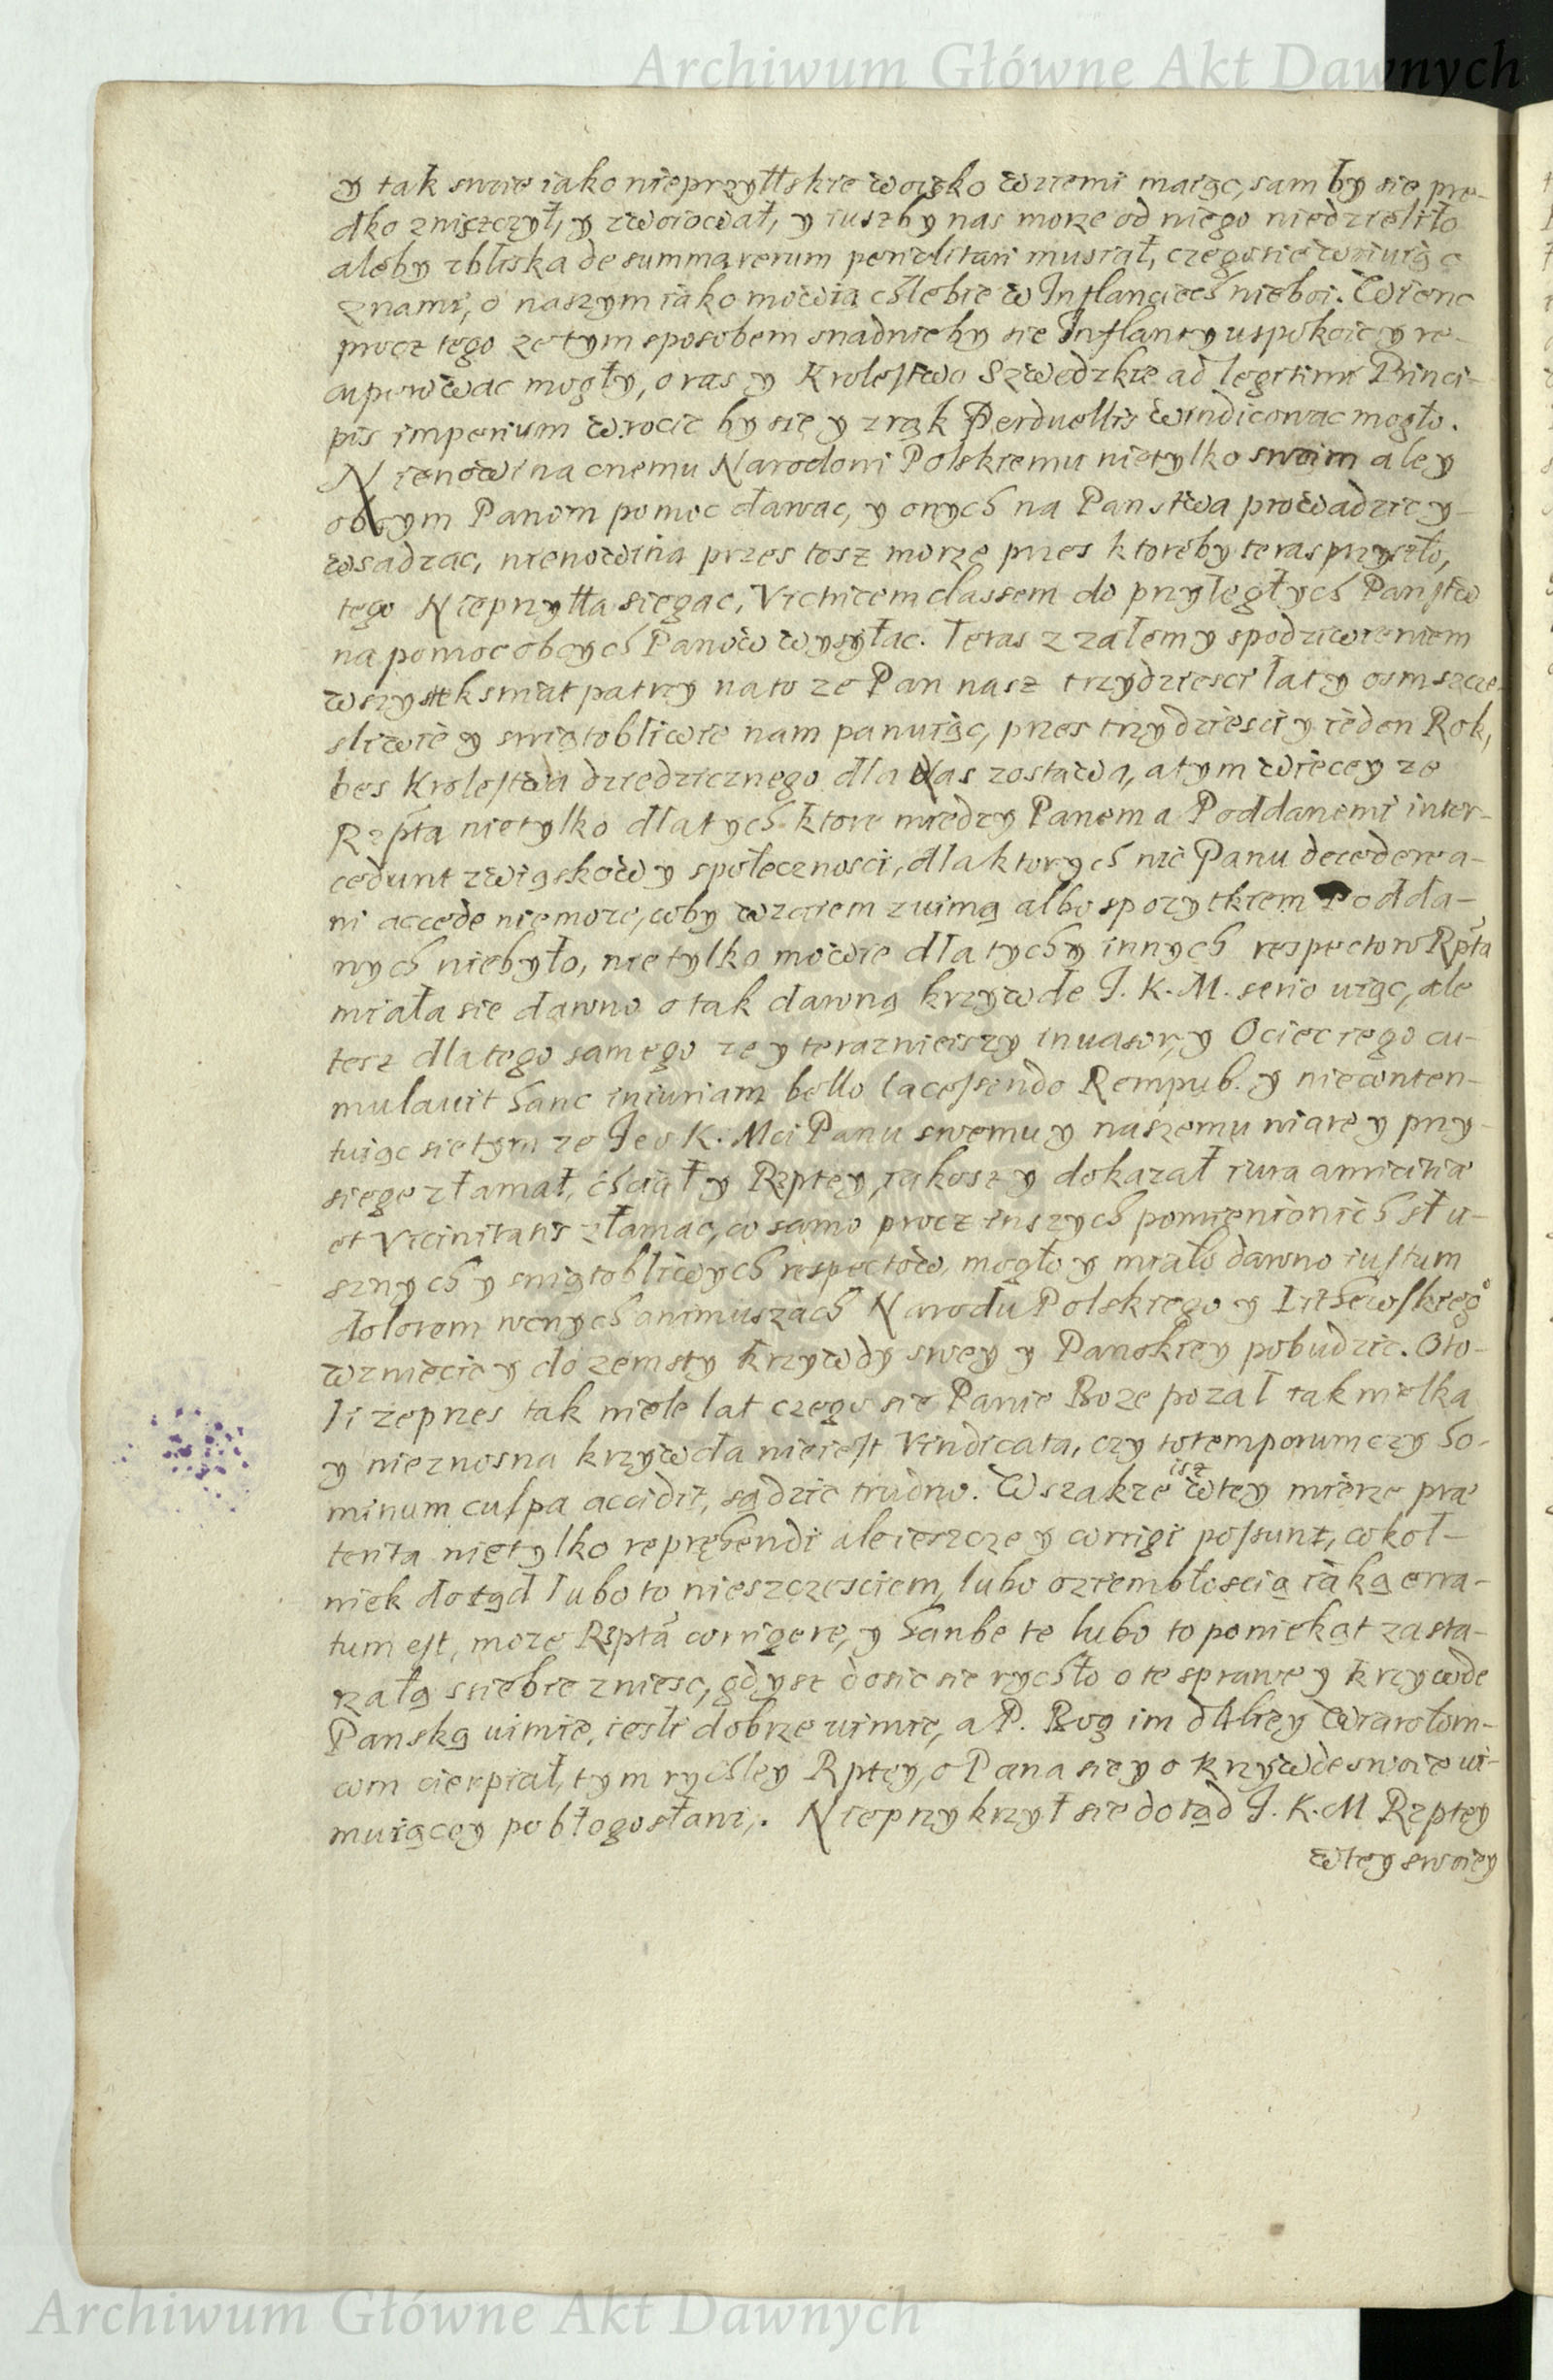 Archiwum Główne Akt Dawnych
y tak swoie iako nieprzyllskie woisko w ziemi maiąc, sam by się prę-
dko zniszczył, y zwoiował, y iuszby nas morze od niego niedzieliło
aleby zbliska de summa rerum periclitari musiał, czego się woiuiąc
z nami, o naszym iako mowią chlebie w Inflanciech nieboi. Wienc
procz tego ze tym sposobem snadnieby się Inflanty uspokoic y re-
cuperowac mogły, oras y Krolestwo Szwedzkie ad legitimi Princi-
pis imperium wrocic by się y z rąk Perduellis windicowac mogło.
Nienowina cnemu Narodowi Polskiemu nietylko swoim ale y
obcym Panom pomoc dawac, y onych na Panstwa prowadzic y
wsadzac, nienowina przes tosz morze przes ktoreby teras przyszło,
tego Nieprzylla sięgac, Victricem classem do przyległych Panstw
na pomoc obcych Panow wysyłac. Teras z zalem y spodziwieniem
wszystek swiat patrzy na to ze Pan nasz trzydziesci lat y osm szczę-
sliwie y swiątobliwie nam panuiąc, przes trzydziesci y ieden Rok,
bes Krolestwa dziedzicznego dla Nas zostawa, a tym więcey ze
Rzpta nietylko dla tych ktore miedzy Panem a Poddanemi inter-
cedunt związkow y społecznosci, dla ktorych nic Panu decedere a-
ni accede nie moze, coby wzaiem z uimą albo spozytkiem Podda-
nych niebyło, nietylko mowie dla tych y innych respectow Rpta
miała się dawno o tak dawną krzywde J. K. M. serio uiąc, ale
tesz dla tego samego ze y terazniejszy inuasor, y Ociec iego cu-
mulauit hanc iniuriam bello lacessendo Rempub. y nieconten-
tuiąc się tym ze Jeo K. Mci Panu swemu y naszemu wiare y przy-
sięge złamał, chciał y Rzptey, iakosz y dokazał iura amicitiæ
et Vicinitatis złamac, co samo procz inszych pomienionich słu-
sznych y swiątobliwych respectow, mogło y miało dawno iustum
dolorem w cnych animuszach Narodu Polskiego y Lithewskiego
wzniecic y do zemsty krzywdy swey y Panskiey pobudzic. Oto-
li ze przes tak wiele lat czego się Panie Boze pozal tak wielka
y nieznosna krzywda nieiest Vindicata, czy to temporum czy ho-
minum culpa accidit, sądzic trudno. Wszakze isz w tey mierze præ
terita nietylko reprehendi ale ieszcze y corrigi possunt, cokol-
wiek dotąd lubo to nieszczesciem, lubo oziembłoscią iaką erra-
tum est, moze Rzpta corrigere, y hanbe te lubo to poniekąt zasta-
rzałą s siebie zniesc, gdysz dosic się rychło o te sprawe y krzywde
Panską uimie, iesli dobrze uimie, a P. Bog im dłuzey Wiarołom-
com cierpiał, tym rychley Rptey, o Pana się y o krzywde swoie ui-
muiącey pobłogosławi. Nieprzykrzył się dotąd J. K. M Rzptey
w tey swoiey
Archiwum Główne Akt Dawnych